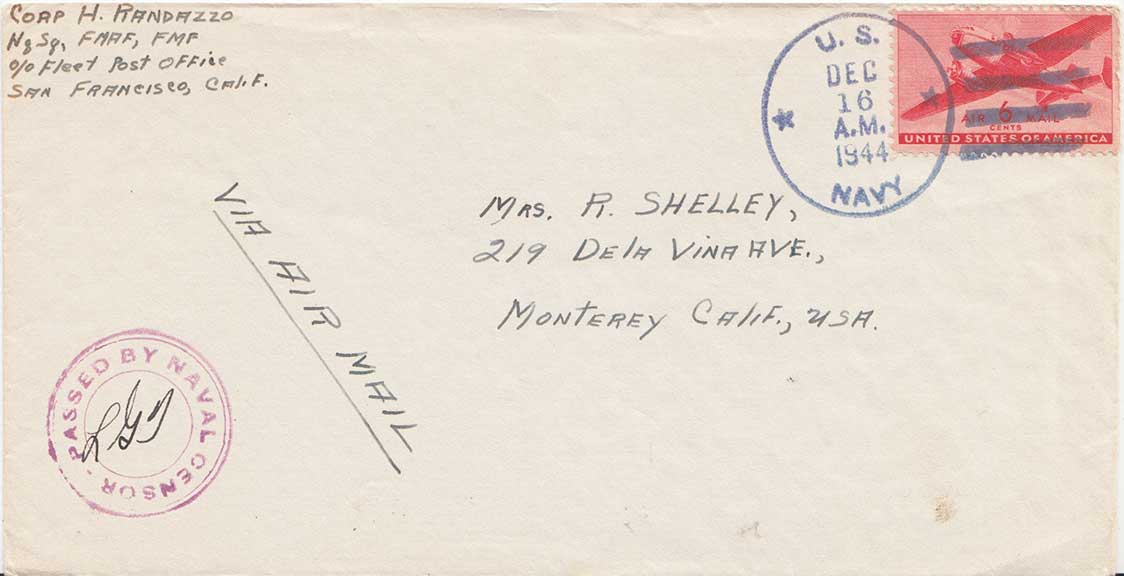 CORP H. RANDAZZO
Hq Sq, FMAF, FMF
c/o Fleet Post Office
SAN FRANCISCO, CALIF.
U. S.
DEC
16
A.M.
1944
NAVY
AIR 6 MAIL
CENTS
UNITED STATES OF AMERICA
MRS. R. SHELLEY,
219 Dela VINA AVE.,
MONTEREY CALIF., USA.
VIA AIR MAIL
PASSED BY NAVAL CENSOR